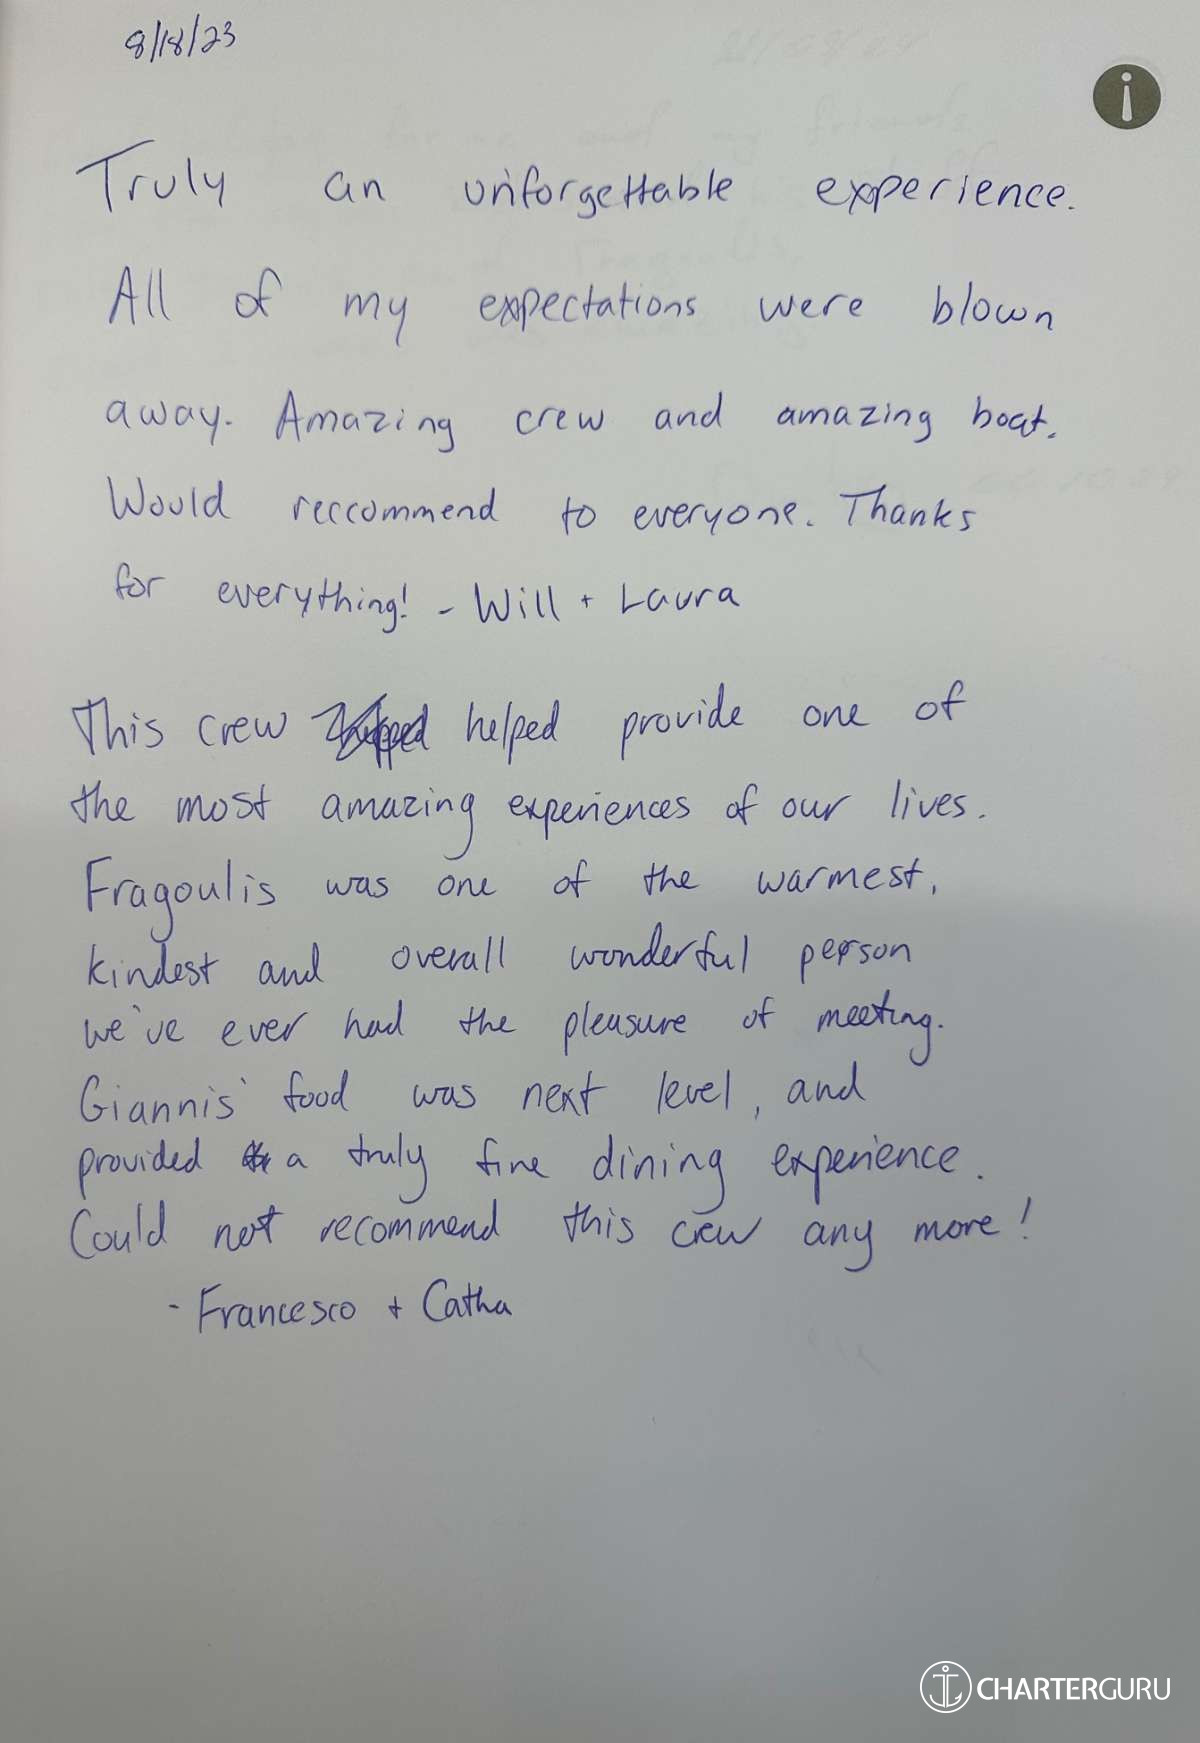 8/18/23
Truly an unforgettable experience.
All of my expectations were blown
away. Amazing crew and amazing boat.
Would reccommend to everyone. Thanks
for everything! - Will + Laura
This crew helped provide one of
the most amazing experiences of our lives.
Fragoulis was one of the warmest,
kindest and overall wonderful person
we've ever had the pleasure of meeting.
Giannis' food was next level, and
provided a truly fine dining experience.
Could not recommend this crew any more!
- Francesco + Catha
CHARTERGURU